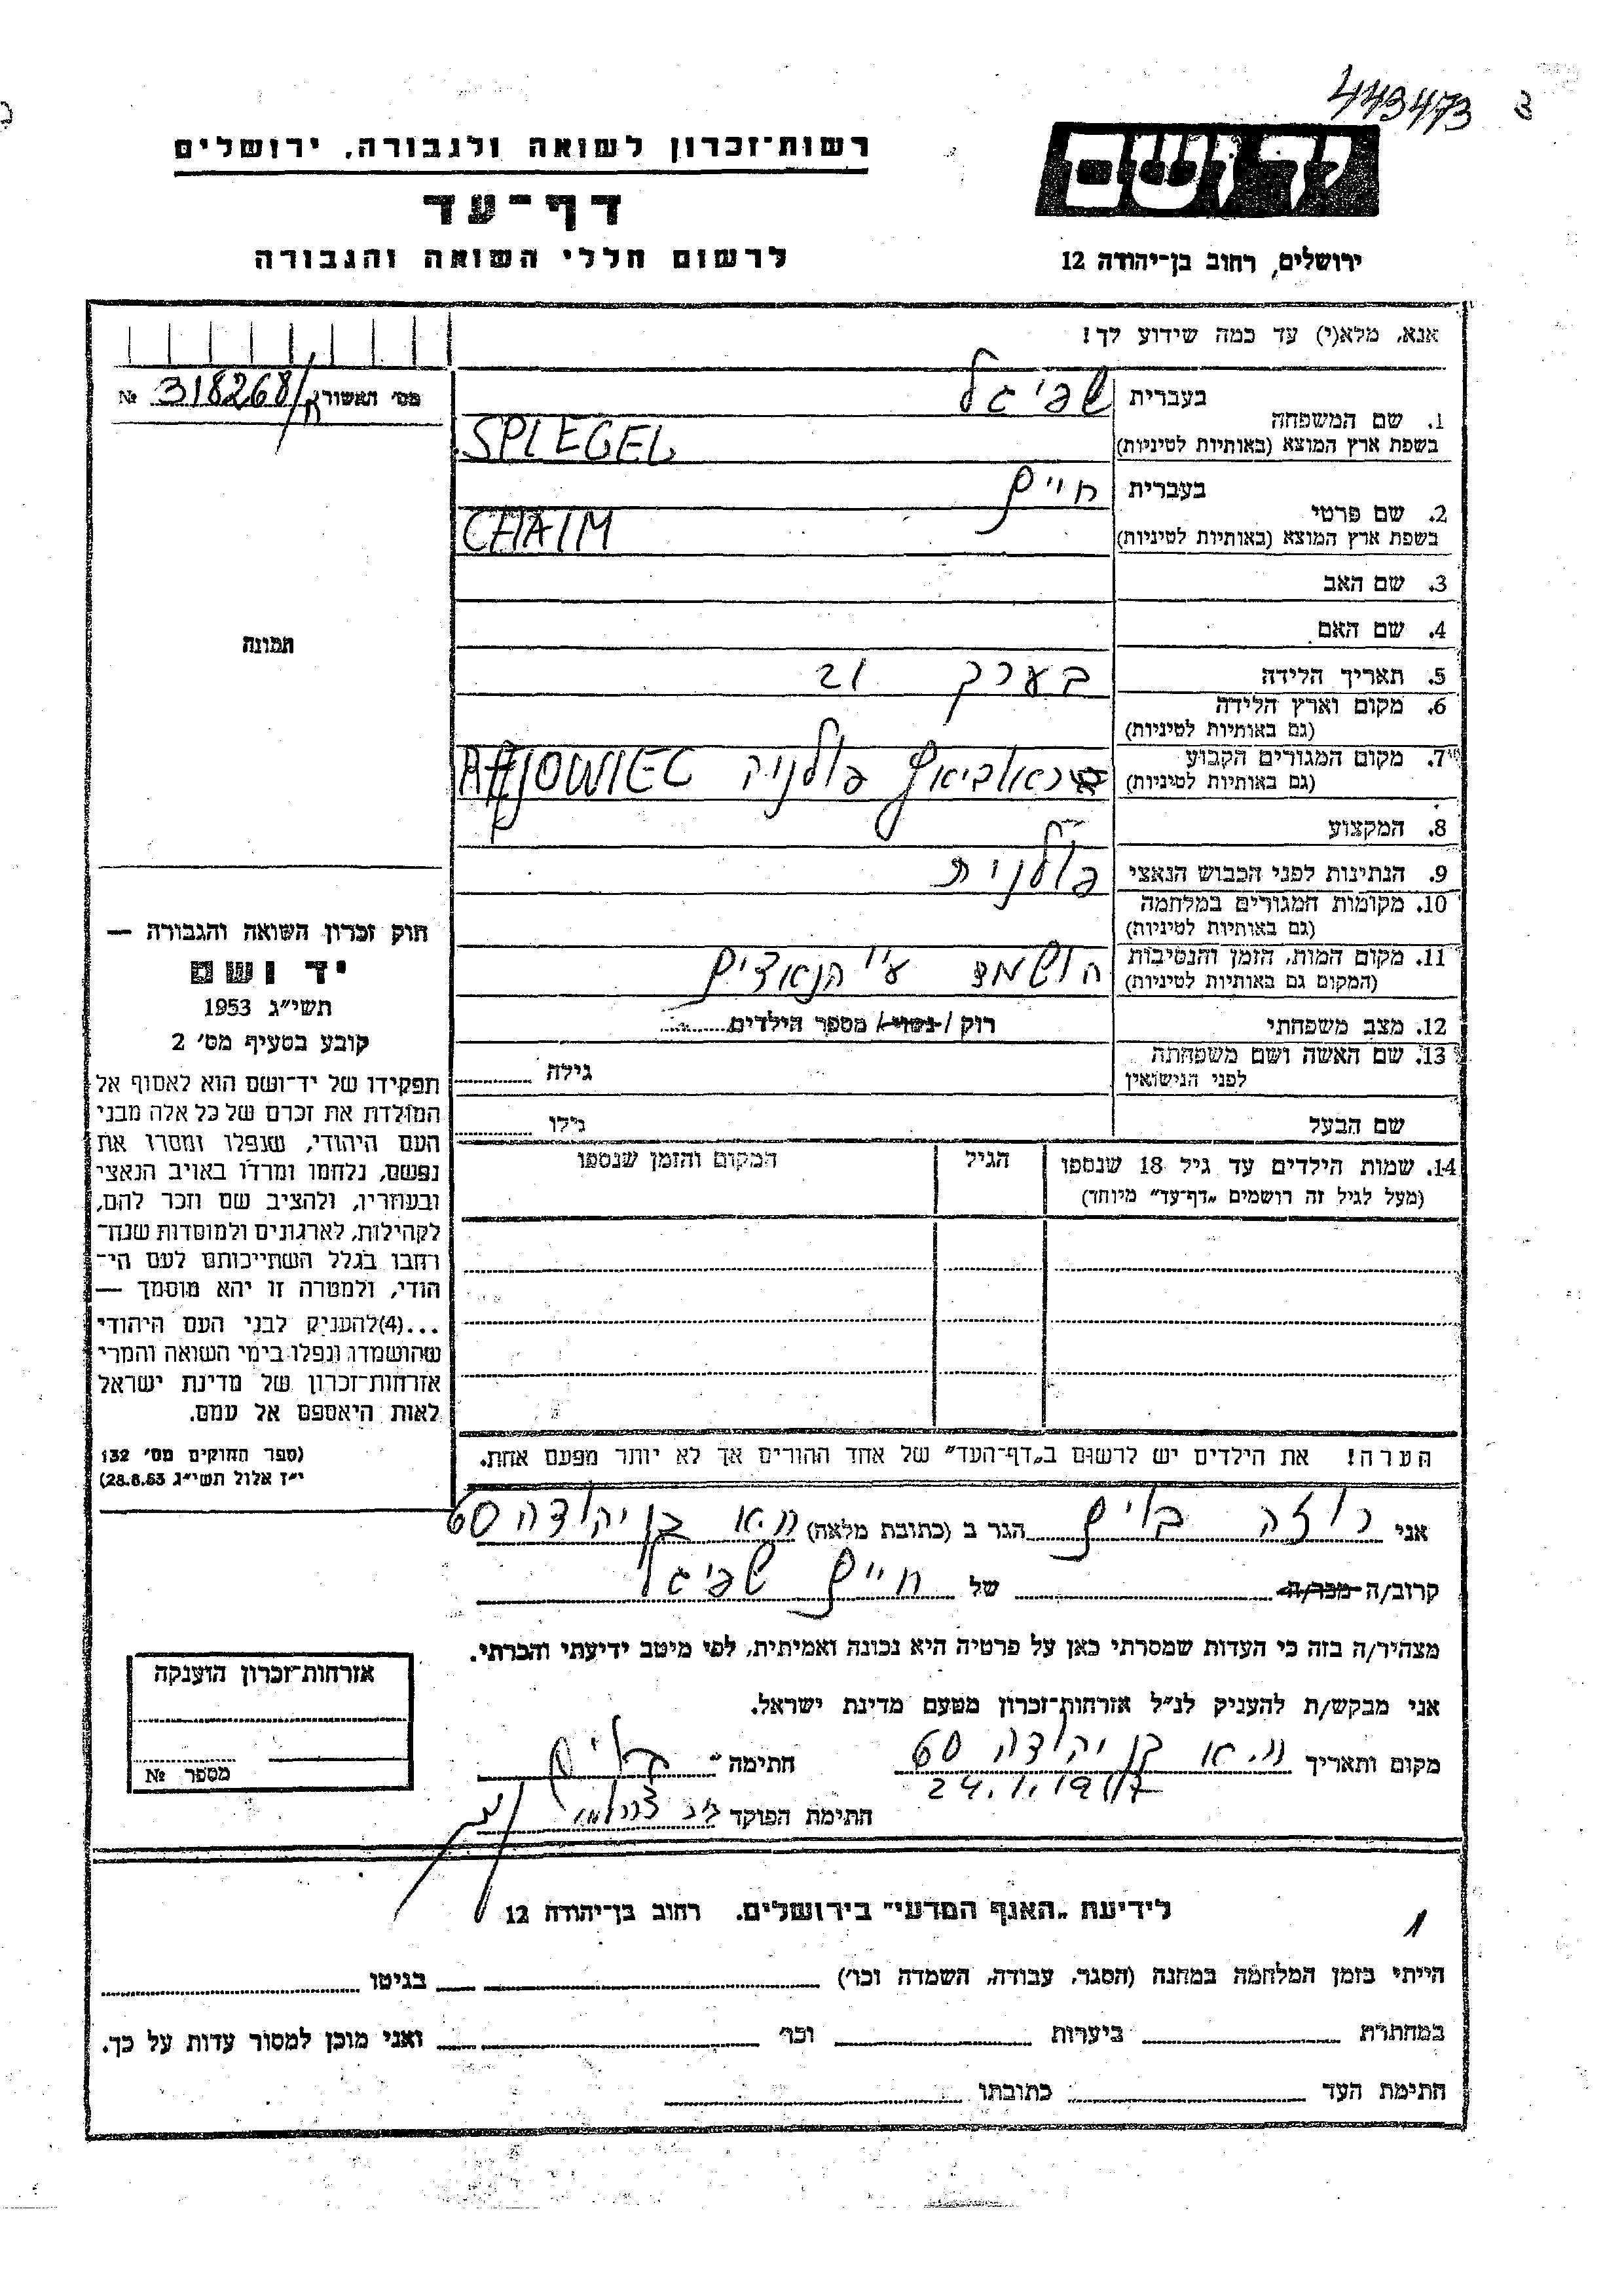 443473
רשות־זכרון לשואה ולגבורה, ירושלים
דף־עד
לרשום חללי השואה והגבורה
יד ושם
ירושלים, רחוב בן־יהודה 12
אנא, מלא(י) עד כמה שידוע לך!
מס' האשור 318268/ № 
1. שם המשפחה
בעברית שפיגל
בשפת ארץ המוצא (באותיות לטיניות) SPLEGEL
2. שם פרטי
בעברית חיים
בשפת ארץ המוצא (באותיות לטיניות) CHAIM
3. שם האב
4. שם האם
תמונה
5. תאריך הלידה בערך 21
6. מקום וארץ הלידה
(גם באותיות לטיניות)
7. מקום המגורים הקבוע
(גם באותיות לטיניות) פולניה
8. המקצוע
9. הנתינות לפני הכבוש הנאצי פולנית
10. מקומות המגורים במלחמה
(גם באותיות לטיניות)
11. מקום המות, הזמן והנסיבות
(המקום גם באותיות לטיניות) הושמד ע"י הנאצים
12. מצב משפחתי רוק / נשוי / מספר הילדים
13. שם האשה ושם משפחתה
לפני הנישואין גילה
שם הבעל גילו
14. שמות הילדים עד גיל 18 שנספו הגיל המקום והזמן שנספו
(מעל לגיל זה רושמים „דף־עד” מיוחד)
הערה! את הילדים יש לרשום ב„דף־העד” של אחד ההורים אך לא יותר מפעם אחת.
חוק זכרון השואה והגבורה —
יד ושם
תשי"ג 1953
קובע בסעיף מס' 2
תפקידו של יד־ושם הוא לאסוף אל
המולדת את זכרם של כל אלה מבני
העם היהודי, שנפלו ומסרו את
נפשם, נלחמו ומרדו באויב הנאצי
ובעוזריו, ולהציב שם וזכר להם,
לקהילות, לארגונים ולמוסדות שנח־
רבו בגלל השתייכותם לעם הי־
הודי, ולמטרה זו יהא מוסמך —
...(4)להעניק לבני העם היהודי
שהושמדו ונפלו בימי השואה והמרי
אזרחות־זכרון של מדינת ישראל
לאות היאספם אל עמם.
(ספר החוקים מס' 132
י"ז אלול תשי"ג 28.8.53)
אני רוזה בוים הגר ב (כתובת מלאה) ת.א בן יהודה 60
קרוב/ה מכר/ה של חיים שפיגל
מצהיר/ה בזה כי העדות שמסרתי כאן על פרטיה היא נכונה ואמיתית, לפי מיטב ידיעתי והכרתי.
אני מבקש/ת להעניק לנ"ל אזרחות־זכרון מטעם מדינת ישראל.
מקום ותאריך ת.א בן יהודה 60 חתימה בוים
24.1.19
חתימת הפוקד
אזרחות־זכרון הוענקה
מספר №
לידיעת „האגף המדעי” בירושלים. רחוב בן־יהודה 12
הייתי בזמן המלחמה במחנה (הסגר, עבודה, השמדה וכו') בגיטו
במחתרת ביערות וכו' ואני מוכן למסור עדות על כך.
חתימת העד כתובתו